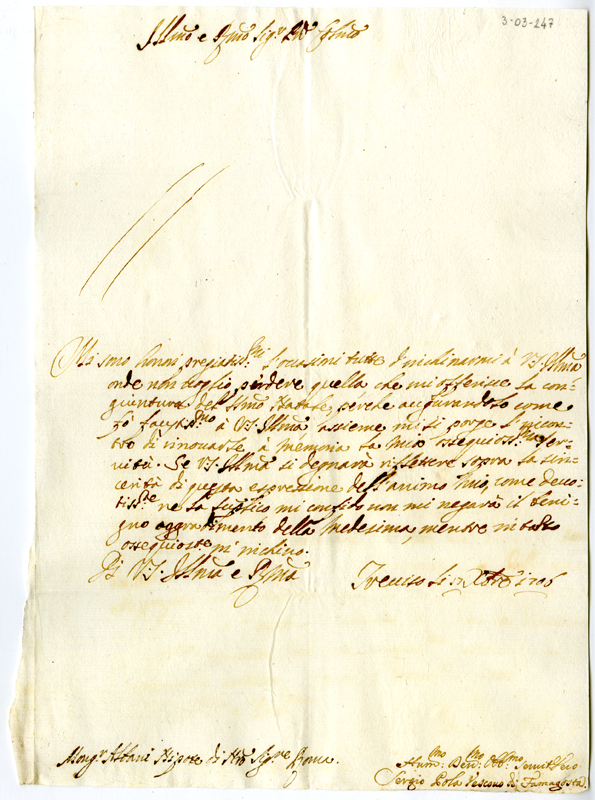 3-03-247
Illmo e Rmo Sigr
Mi sono honori pregiatissmi l'occasioni tutte d'inchinarmi à V.S. Illma
onde non voglio perdere quella che mi offerisce la con=
giuntura del Smo Natale, perche augurandolo come
fò à V.S. Illma assieme mi si porge l'incon=
tro di rinouarle à memoria la mia ossequiosissma ser=
uitù. Se V.S. Illma si degnarà riflettere sopra la sin=
cerità di questa espressione dell'animo mio, come deuo=
tissmte ne la supplico mi confido non mi negarà il beni=
gno aggradimento della medesima, mentre in tutto
ossequioste m'inchino.
Di V.S. Illma e Rma Treuiso li Xbre
Mongr Albani Nipote di Nro Sigre Roma.
Humo: Deuo: Obbmo Seruit Vero
Sergio Pola Vescouo di Famagosta